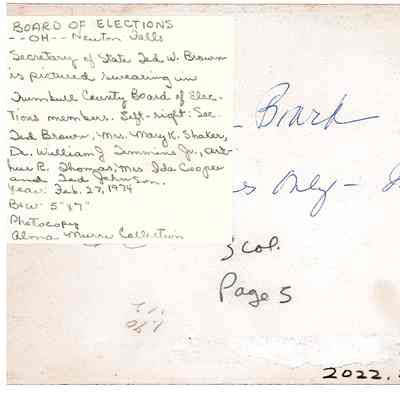 BOARD OF ELECTIONS
--OH-- Newton Falls
Secretary of State Ted W. Brown
is pictured swearing in
Trumbull County Board of Elec-
tions members. Left-right: Sec.
Ted Brown, Mrs. Mary K. Shaker,
Dr. William J Timmins Jr., Art-
hur R. Thomas, Mrs Ida Cooper
and Ted Johnson.
Year: Feb. 27, 1974
B+W 5"x7"
Photocopy
Alma Murri Collection
- Board
es Only -
3 Col.
Page 5
2022.